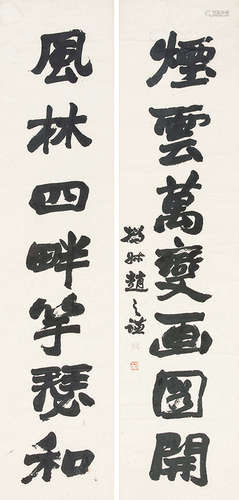 煙雲萬變画圖開
風林四畔竽瑟和
撝叔趙之謙